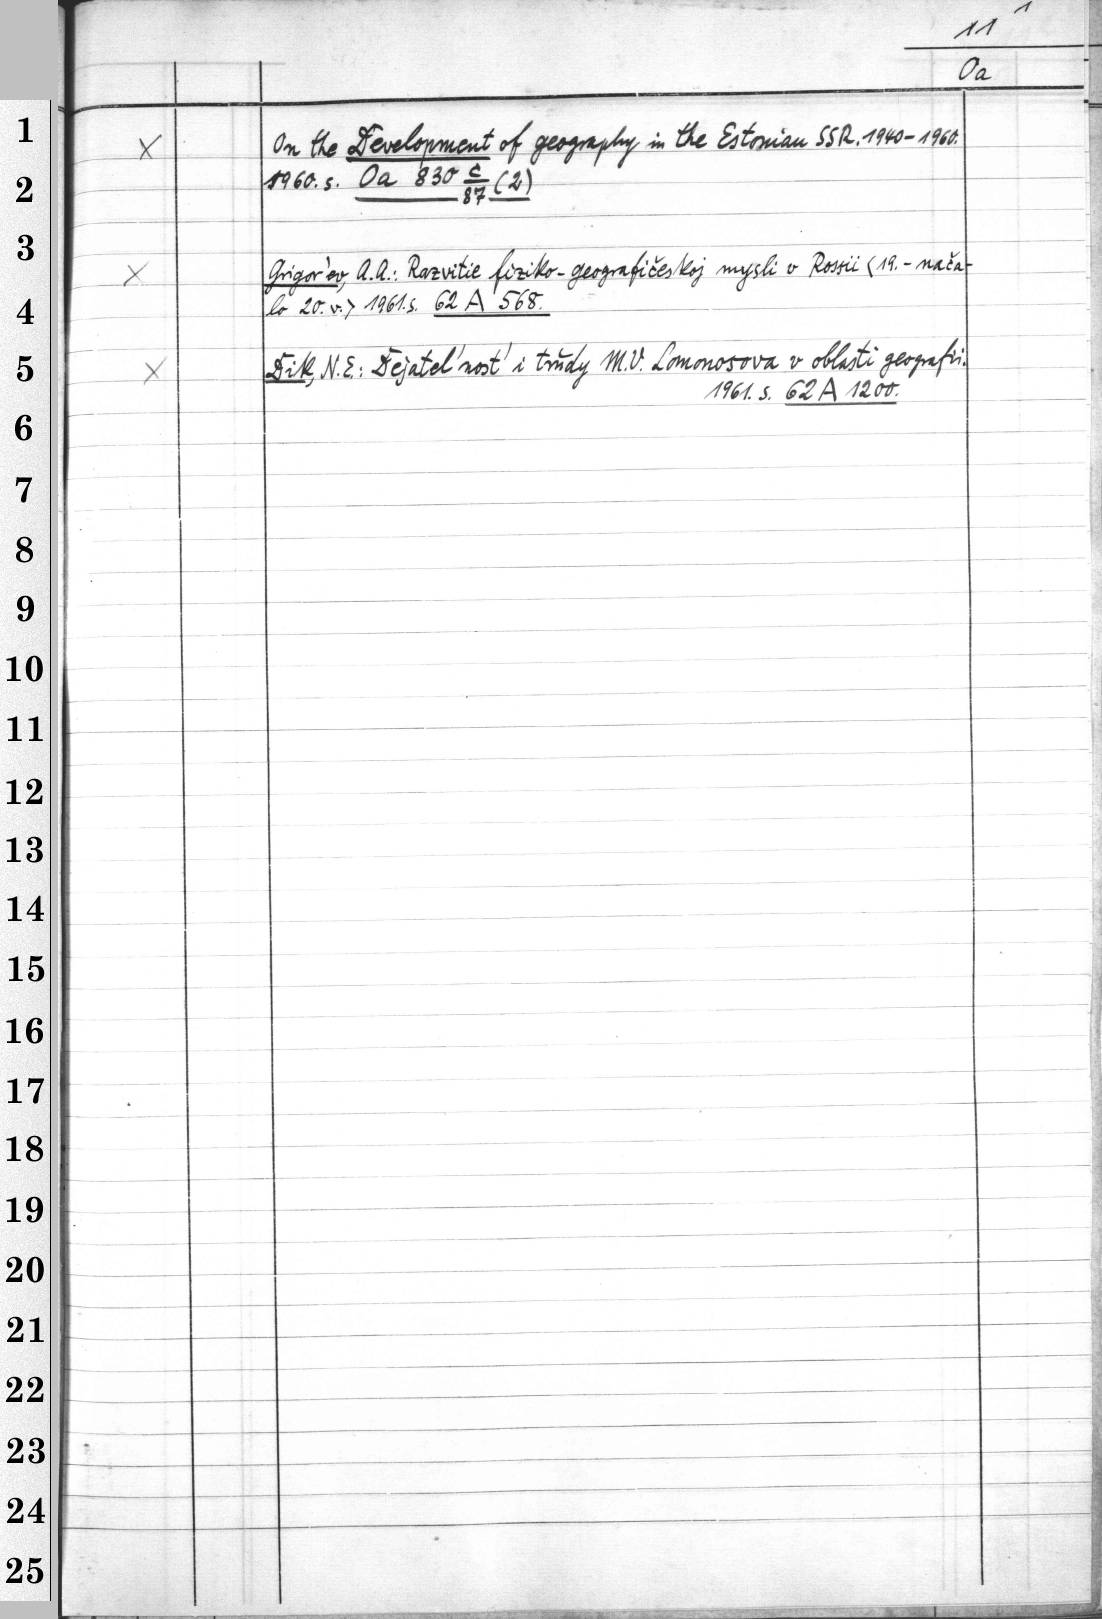 11 1
Oa
1
X On the Development of geography in the Estonian SSR. 1940-1960.
2
1960. s. Oa 830 c/87 (2)
3
X Grigor'ev, A.A.: Razvitie fiziko-geografičeskoj mysli v Rossii (19.- nača-
4
lo 20. v.) 1961. s. 62 A 568.
5
X Dik, N.E.: Dejatel'nost' i trudy M.V. Lomonosova v oblasti geografii.
1961. s. 62 A 1200.
6
7
8
9
10
11
12
13
14
15
16
17
18
19
20
21
22
23
24
25